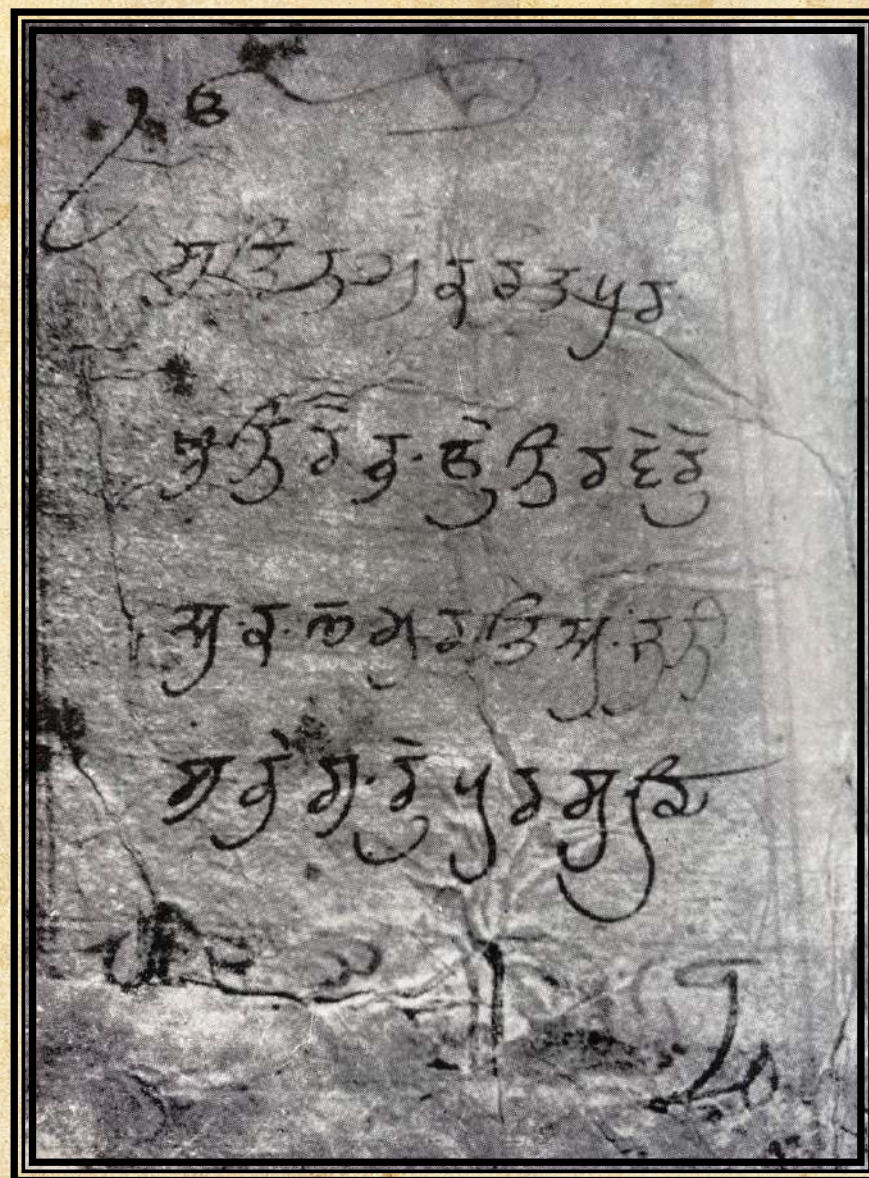 ੴ
ਸਤਿ ਨਾਮੁ ਕਰਤਾ ਪੁਰ
ਖੁ ਨਿਰੋਭਉ ਨਿਰਵੈਰੁ
ਅਕਾਲ ਮੂਰਤਿ ਅਜੂਨੀ
ਸਭੋ ਗੁਰੁ ਪਰਸਾਦਿ